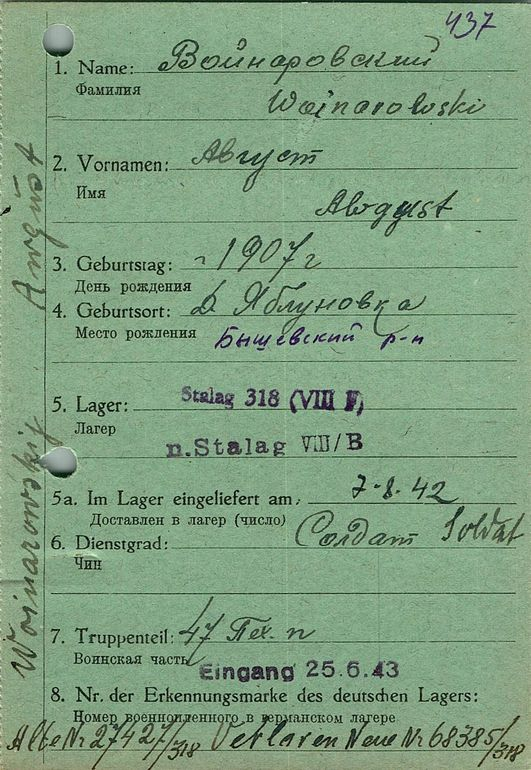 437
1. Name: Войнаровский
Фамилия
Woinarowski
2. Vornamen: Август
Имя
Awgust
3. Geburtstag: 1907 г
День рождения
4. Geburtsort: д. Яблуновка
Место рождения Бышевский р-н
5. Lager: Stalag 318 (VIII F)
Лагер
n. Stalag VIII/B
5a. Im Lager eingeliefert am: 7-8-42
Доставлен в лагер (число)
6. Dienstgrad: Солдат Soldat
Чин
7. Truppenteil: 47 Пех. п
Воинская часть
Eingang 25.6.43
8. Nr. der Erkennungsmarke des deutschen Lagers:
Номер военнопленного в германском лагере
Alte Nr 27427/318 Verloren Neue Nr 68385/318
Woinarowskij August